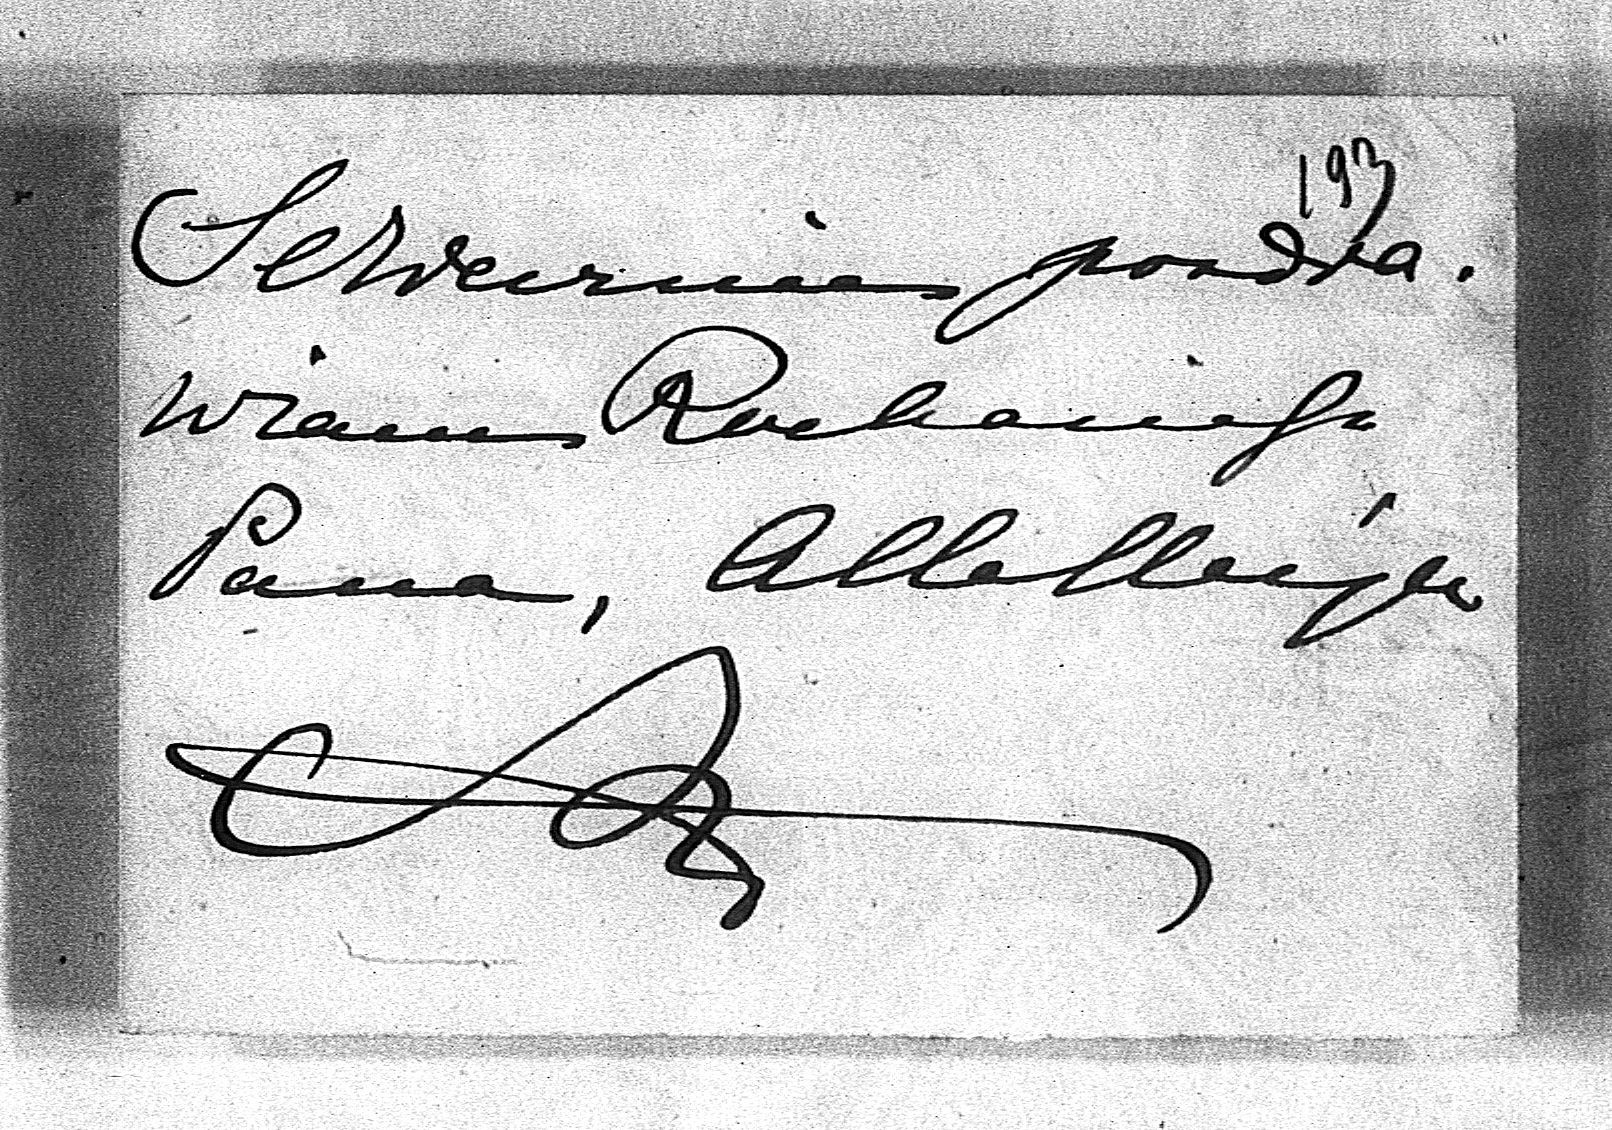 193
Serdecznie pozdra.
wiam Kochanego
Pana, Alleluja